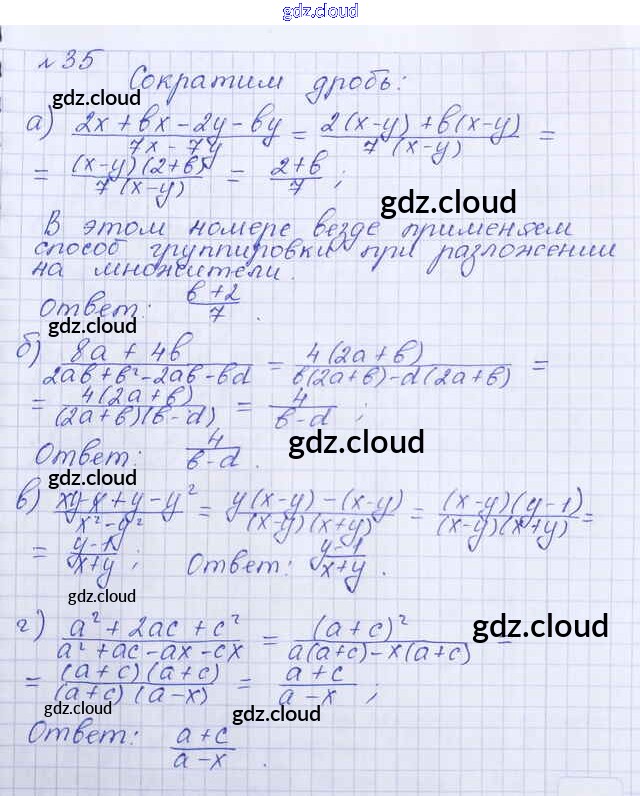 gdz.cloud
№ 35
Сократим дробь:
gdz.cloud
а) (2x + bx - 2y - by)/(7x - 7y) = (2(x-y) + b(x-y))/(7(x-y)) =
= ((x-y)(2+b))/(7(x-y)) = (2+b)/7 ;
gdz.cloud
В этом номере везде применяем
способ группировки при разложении
на множители.
Ответ: (b+2)/7 .
gdz.cloud
б) (8a + 4b)/(2ab + b² - 2ab - bd) = (4(2a+b))/(b(2a+b) - d(2a+b)) =
= (4(2a+b))/((2a+b)(b-d)) = 4/(b-d) ;
gdz.cloud
Ответ: 4/(b-d) .
gdz.cloud
в) (xy - x + y - y²)/(x² - y²) = (y(x-y) - (x-y))/((x-y)(x+y)) = ((x-y)(y-1))/((x-y)(x+y)) =
= (y-1)/(x+y) ; Ответ: (y-1)/(x+y) .
gdz.cloud
г) (a² + 2ac + c²)/(a² + ac - ax - cx) = (a+c)²/(a(a+c) - x(a+c)) =
gdz.cloud
= ((a+c)(a+c))/((a+c)(a-x)) = (a+c)/(a-x) ;
gdz.cloud
gdz.cloud
Ответ: (a+c)/(a-x) .